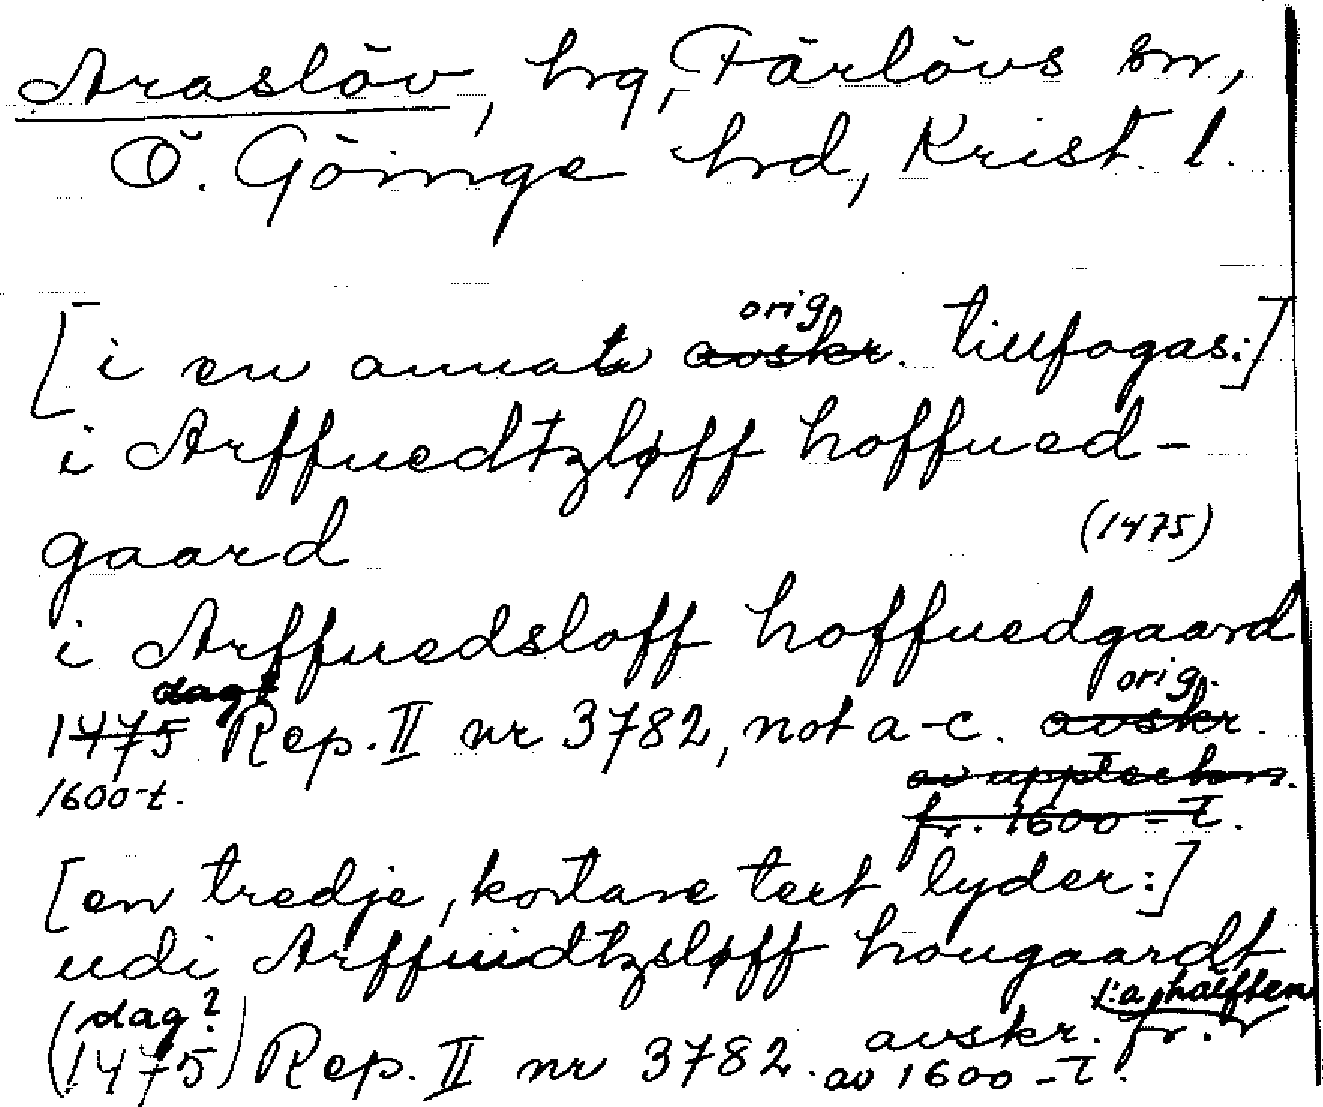 Araslöv, hrg, Färlövs sn,
Ö. Göinge hrd, Krist. l.
orig.
[i en annat avskr. tillfogas:]
i Arffuedtzløff hoffued-
gaard (1475)
i Arffuedsloff hoffuedgaard
dag? orig.
1475 Rep. II nr 3782, not a-c. avskr.
1600-t. av uppteckn.
fr. 1600-t.
[en tredje, kortare text lyder:]
udi Arffuidtzsløff hougaardt
(dag? 1:a hälften
1475) Rep. II nr 3782. avskr. fr.
av 1600-t.